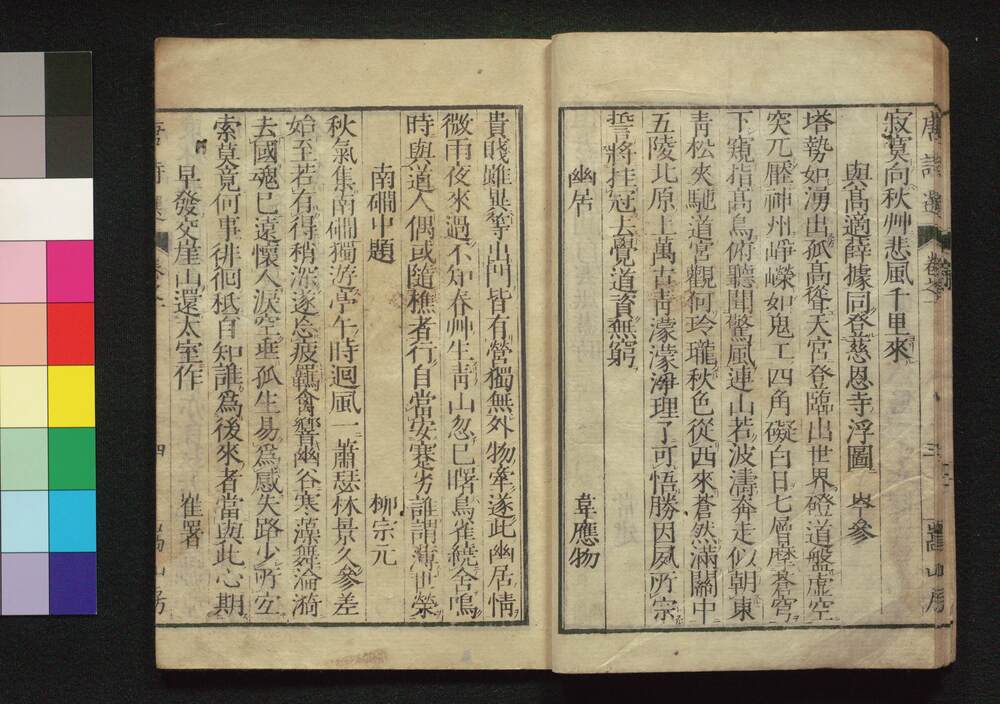 唐詩選 卷之一 三 嵩山房
寂寞向秋艸悲風千里來
與高適薛據同登慈恩寺浮圖 岑參
塔勢如湧出孤高聳天宮登臨出世界磴道盤虛空
突兀壓神州崢嶸如鬼工四角礙白日七層摩蒼穹
下窺指高鳥俯聽聞驚風連山若波濤奔走似朝東
靑松夾馳道宮觀何玲瓏秋色從西來蒼然滿關中
五陵北原上萬古靑濛濛淨理了可悟勝因夙所宗
誓將挂冠去覺道資無窮
幽居 韋應物
貴賤雖異等出門皆有營獨無外物牽遂此幽居情
微雨夜來過不知春艸生靑山忽已曙鳥雀繞舍鳴
時與道人偶或隨樵者行自當安蹇劣誰謂薄世榮
南磵中題 柳宗元
秋氣集南磵獨游亭午時迴風一蕭瑟林景久參差
始至若有得稍深遂忘疲羈禽響幽谷寒藻舞淪漪
去國魂已遠懷人淚空垂孤生易爲感失路少所宜
索莫竟何事徘徊秪自知誰爲後來者當與此心期
早發交崖山還太室作 崔署
唐詩選 卷之一 四 嵩山房